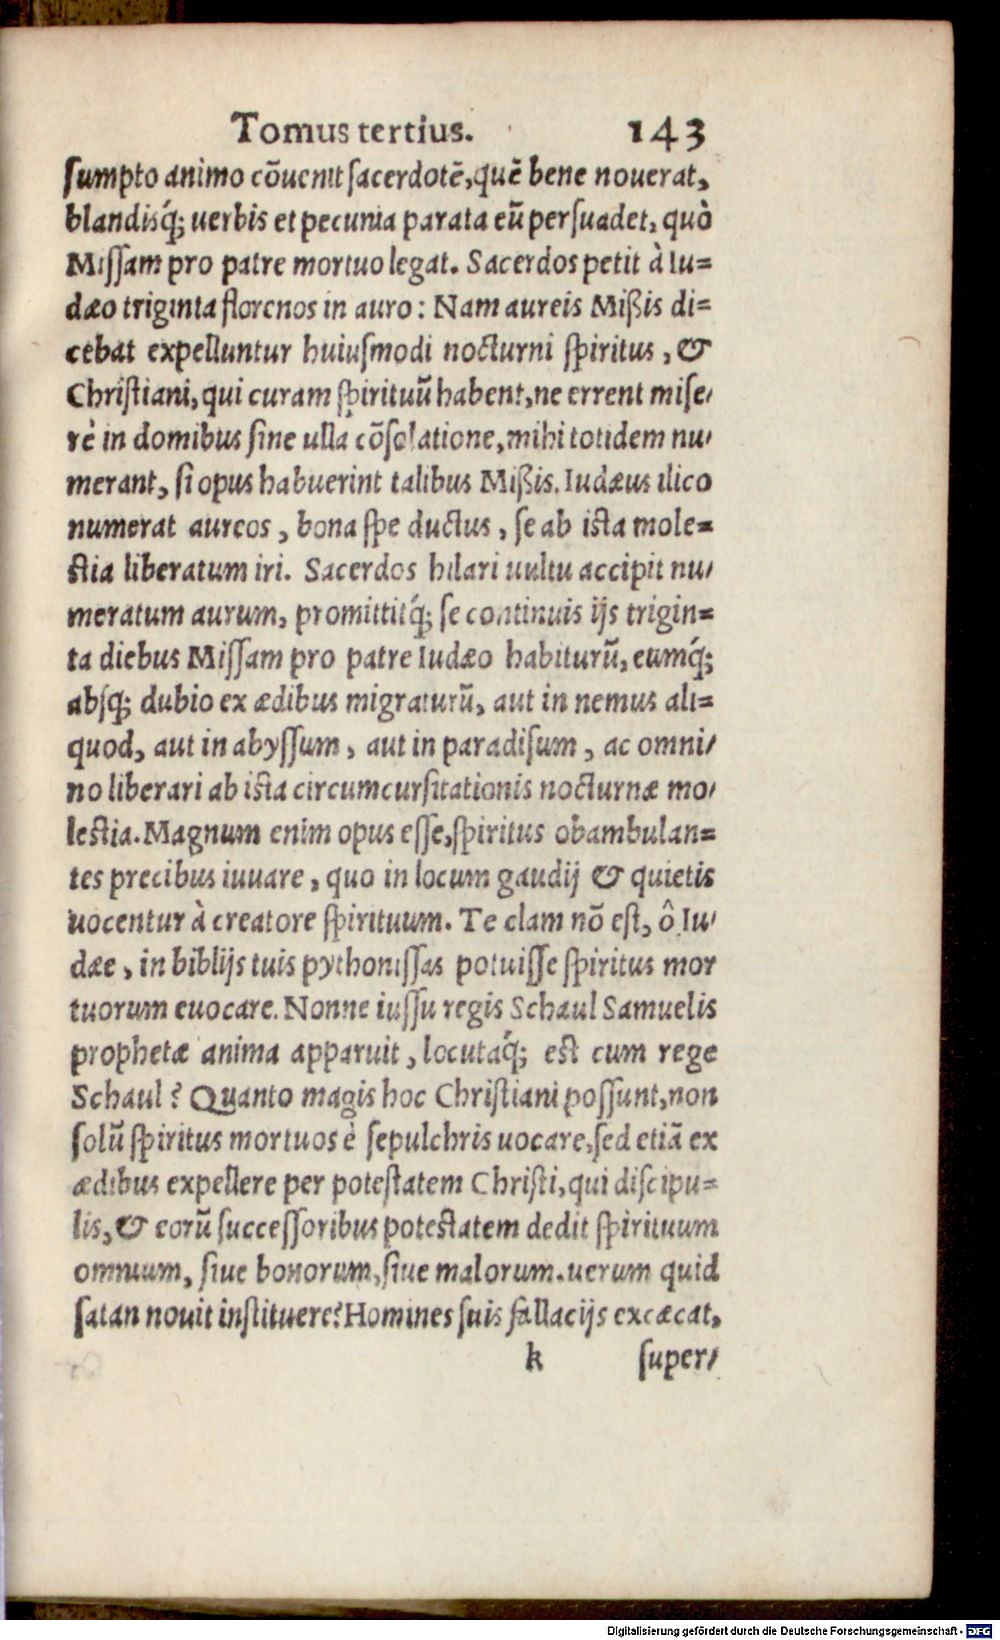 Tomus tertius. 143
sumpto animo cõuenit sacerdotẽ, quẽ bene nouerat,
blandisq́; uerbis et pecunia parata eũ persuadet, quò
Missam pro patre mortuo legat. Sacerdos petit à Iu=
dæo triginta florenos in auro: Nam aureis Mißis di=
cebat expelluntur huiusmodi nocturni spiritus, &
Christiani, qui curam spirituũ habent, ne errent mise/
rè in domibus sine ulla cõsolatione, mihi totidem nu/
merant, si opus habuerint talibus Mißis. Iudæus ilico
numerat aureos, bona spe ductus, se ab ista mole=
stia liberatum iri. Sacerdos hilari uultu accipit nu/
meratum aurum, promittitq́; se continuis ijs trigin=
ta diebus Missam pro patre Iudæo habiturũ, eumq́;
absq; dubio ex ædibus migraturũ, aut in nemus ali=
quod, aut in abyssum, aut in paradisum, ac omni/
no liberari ab ista circumcursitationis nocturnæ mo/
lestia. Magnum enim opus esse, spiritus obambulan=
tes precibus iuuare, quo in locum gaudij & quietis
uocentur à creatore spirituum. Te clam nõ est, ô Iu/
dæe, in biblijs tuis pythonissas potuisse spiritus mor
tuorum euocare. Nonne iussu regis Schaul Samuelis
prophetæ anima apparuit, locutaq́; est cum rege
Schaul? Quanto magis hoc Christiani possunt, non
solũ spiritus mortuos è sepulchris uocare, sed etiã ex
ædibus expellere per potestatem Christi, qui discipu=
lis, & eorũ successoribus potestatem dedit spirituum
omnium, siue bonorum, siue malorum. uerum quid
satan nouit instituere? Homines suis fallacijs excæcat,
k super/
Digitalisierung gefördert durch die Deutsche Forschungsgemeinschaft - DFG